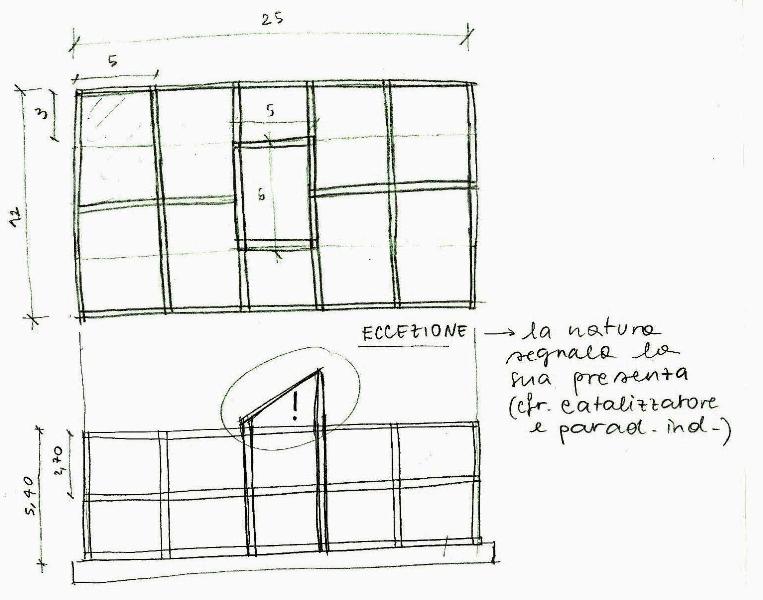 25
5
3
5
12
6
ECCEZIONE → la natura
segnala la
sua presenza
(cfr. catalizzatore
e parad. ind.)
!
2,70
5,40